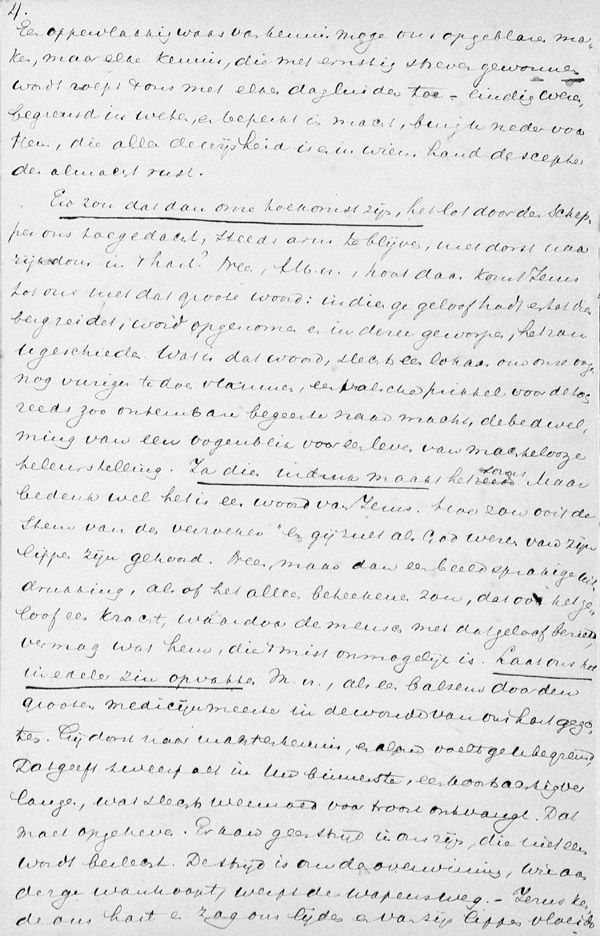 4.
Een oppervlakkig waas van kennis moge ons opgeblazen ma-
ken, maar elke kennis, die met ernstig streven gewonnen
wordt roept 't ons met elken dag luider toe – eindig wezen
begrensd in weten, en beperkt in macht, buig u neder voor
Hem, die alleen de wijsheid is en in wiens hand de scepter
der almacht rust.
En zou dat dan onze toekomst zijn, het lot door den Schep-
per ons toegedacht, steeds arm te blijven, met dorst naar
rijkdom in 't hart? Nee, M. n., hoor daar komt Jezus
tot ons met dat groote woord: indien ge geloof hadt en tot dien
berg zeidet, word opgenomen en in de zee geworpen, het zou
U geschieden. Wat is dat woord, slechts een lokaas om onze oogen
nog vuriger te doen vlammen, een valsche prikkel voor de toch
reeds zoo ontembare begeerte naar macht, de bedwel-
ming van een oogenblik voor een leven van machtelooze
teleurstelling. Ja dien indruk maakt het soms Maar
bedenk wel het is een woord van Jezus. Hoe zou ooit de
stem van den verzoeker "en gij zult als God wezen" van zijn
lippen zijn gehoord. Nee, maar dan een beeldsprakige uit-
drukking, alsof het alleen beteekenen zou, dat ook het ge-
loof een kracht, waardoor de mensch met dat geloof bezield,
vermag wat hem, die 't mist onmogelijk is. Laat ons het
in edelen zin opvatten M. n., als een balsem door den
grooten medicijnmeester in de wonde van ons hart gego-
ten. Gij dorst naar meesterkennis, en alom voelt ge U begrensd
Dat geeft tweespalt in Uw binnenste, een koortsachtig ver
langen, wat slechts weemoed voor troost ontvangt. Dat
moet ophouden. Er kan geen strijd in ons zijn, die niet eens
wordt beslecht. De strijd is om de overwinning, wie aan
deze wanhoopt, werpt de wapens weg. – Jezus ken-
de ons hart en zag ons lijden en van zijn lippen vloeide